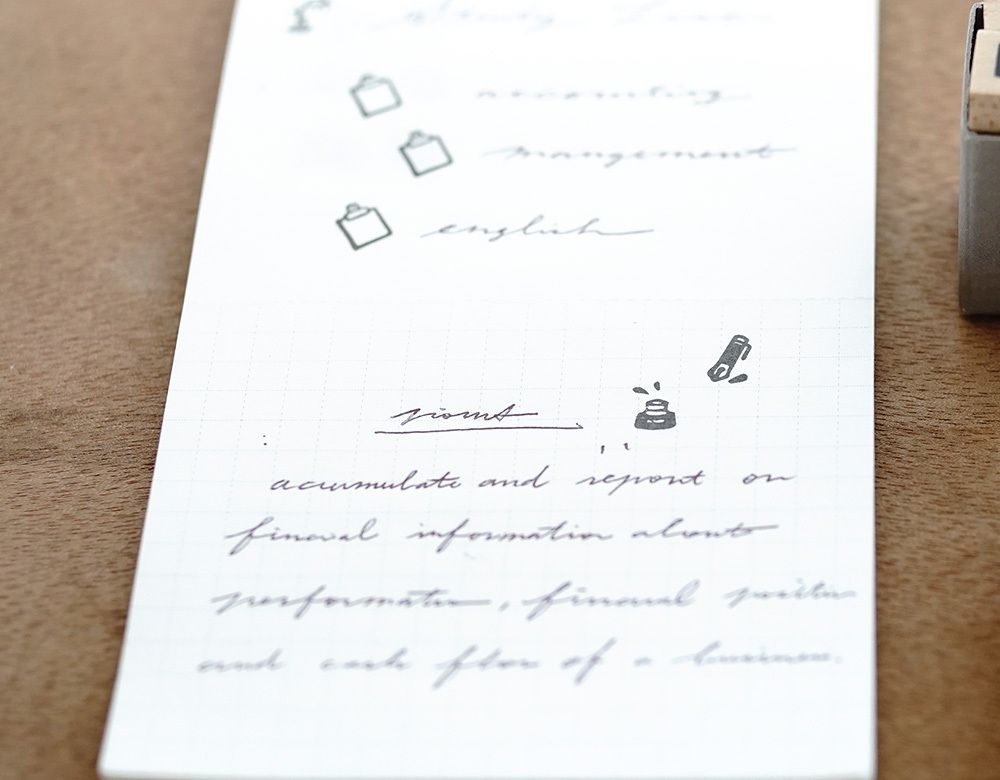 Study Time
accounting
mangement
english
point
accumulate and report on
finacial information about
performate, financial position
and cash flow of a business.